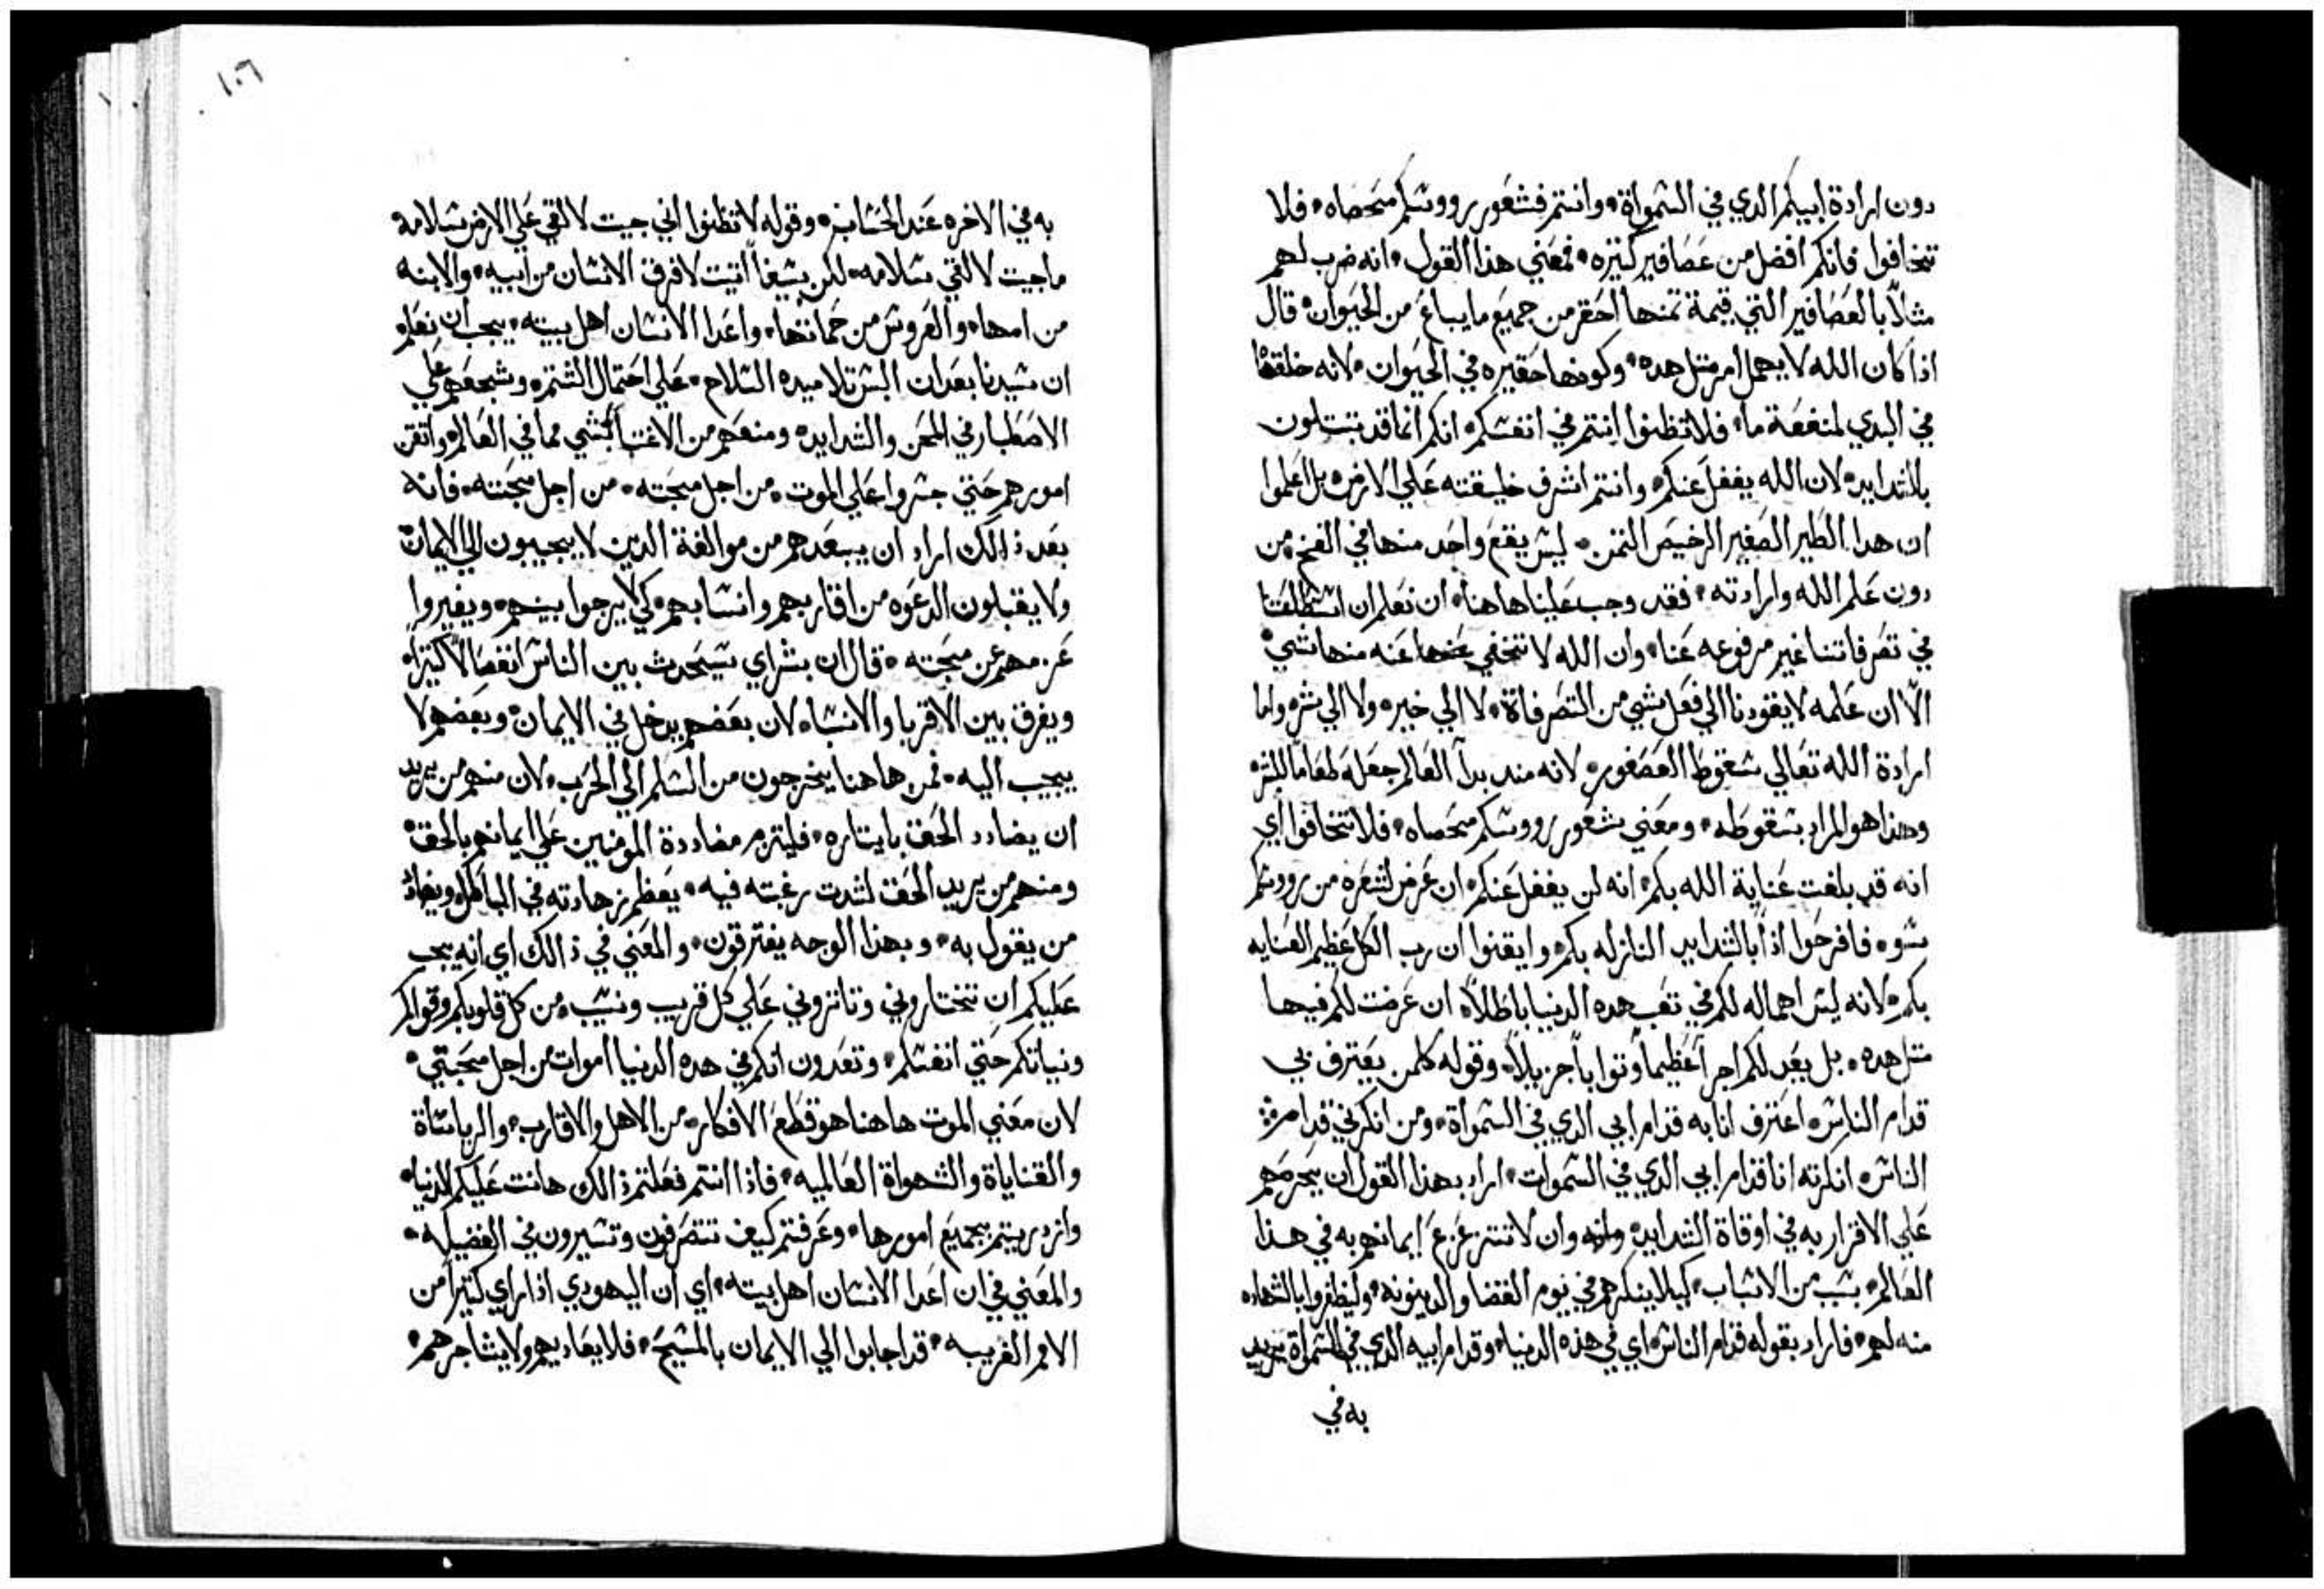 دون ارادة ابيكم الدي في السمواة وانتم فشعور رووسكم محصاه فلا
تخافوا فانكم افضل من عصافير كتيره فمعني هذا القول انه ضرب لهم
مثالاً بالعصافير التي قيمة تمنها احقر من جميع ما يباع من الحيوان قال
اذا كان الله لا يهمل امر متل هده وكونها حقيره في الحيوان لانه خلقها
في البدي لمنفعة ما فلا تظنوا انتم في انفسكم انكم انما قد تبتلون
بالشدايد لان الله يغفل عنكم وانتم اشرف خليقته علي الارض بل اعلموا
ان هدا الطير الصغير الرخيص التمن ليس يقع واحد منها في الفخ من
دون علم الله وارادته فقد وجب علينا هاهنا ان نعلم ان استطالتنا
في تصرفاتنا غير مرفوعه عنا وان الله لا تخفي عنه منها شي
الا ان علمه لا يقودنا الي فعل شي من التصرفاة لا الي خير ولا الي شر واما
ارادة الله تعالي سقوط العصفور لانه مند بدا العالم جعله طعاماً للبشر
وهذا هو المراد بسقوطه ومعني شعور رووسكم محصاه فلا تخافوا اي
انه قد بلغت عناية الله بكم انه لن يغفل عنكم ان عرض لشعره من رووسكم
سوء فافرحوا اذاً بالشدايد النازله بكم وايقنوا ان رب الكل عظيم العنايه
بكم لانه ليس اهماله لكم في تعب هده الدنيا باطلاً ان عرضت لكم فيها
متل هده بل يعد لكم اجراً عظيماً وتواباً جزيلاً وقوله كلمن يعترف بي
قدام الناس اعترف انا به قدام ابي الدي في السمواة ومن انكرني قدام
الناس انكرته انا قدام ابي الدي في السموات اراد بهذا القول ان يحرصهم
علي الاقرار به في اوقاة الشدايد وان لا تتزعزع ايمانهم به في هذا
العالم بسبب من الاسباب كيلا ينكرهم في يوم القضا والدينونه وليظفروا بالشهاده
منه لهم فاراد بقوله قدام الناس اي في هذه الدنيا وقدام ابيه الدي في السمواة يريد
به في
١٠٦
به في الاخره عند الحساب وقوله لا تظنوا اني جيت لالقي علي الارض سلامه
ما جيت لالقي سلامه لكن سيفاً اتيت لافرق الانسان من ابيه والابنه
من امها والعروس من حماتها واعدا الانسان اهل بيته يجب ان نعلم
ان سيدنا بعد ان البس تلاميده السلاح علي احتمال الشتم وشجعهم علي
الاصطبار في المحن والشدايد ومنعهم من الاغتبا بشي مما في العالم واتقن
امورهم حتي جسروا علي الموت من اجل محبته من اجل محبته فانه
بعد ذالك اراد ان يبعدهم من موالفة الدين لا يجيبون الي الايمان
ولا يقبلون الدعوه من اقاربهم وانسابهم كي لا يرجوا بينهم ويغيروا
عزمهم عن محبته قال ان بشراي سيحدث بين الناس انفصالاً كتيراً
ويفرق بين الاقربا والانسباء لان بعضهم يدخل في الايمان وبعضهم لا
يجيب اليه فمن هاهنا يخرجون من السلم الي الحرب لان منهم من يريد
ان يضادد الحق بايتاره فيلتزم مضاددة المومنين علي ايمانهم بالحق
ومنهم من يريد الحق لشدت رغبته فيه يعظم زهادته في الباطل ويضادد
من يقول به وبهذا الوجه يفترقون والمعني في ذالك اي انه يجب
عليكم ان تختاروني وتاتروني علي كل قريب ونسيب من كل قلوبكم وقواكم
ونياتكم حتي انفسكم وتعدون انكم في هده الدنيا اموات من اجل محبتي
لان معني الموت هاهنا هو قطع الافكار من الاهل والاقارب والرياساة
والقناياة والشهواة العالميه فاذا انتم فعلتم ذالك هانت عليكم الدنيا
وازدريتم بجميع امورها وعرفتم كيف تتصرفون وتسيرون في الفضيله
والمعني في ان اعدا الانسان اهل بيته اي ان اليهودي اذا راي كتيراً من
الامم الغريبه قد اجابوا الي الايمان بالمسيح فلا يعاديهم ولا يشاجرهم